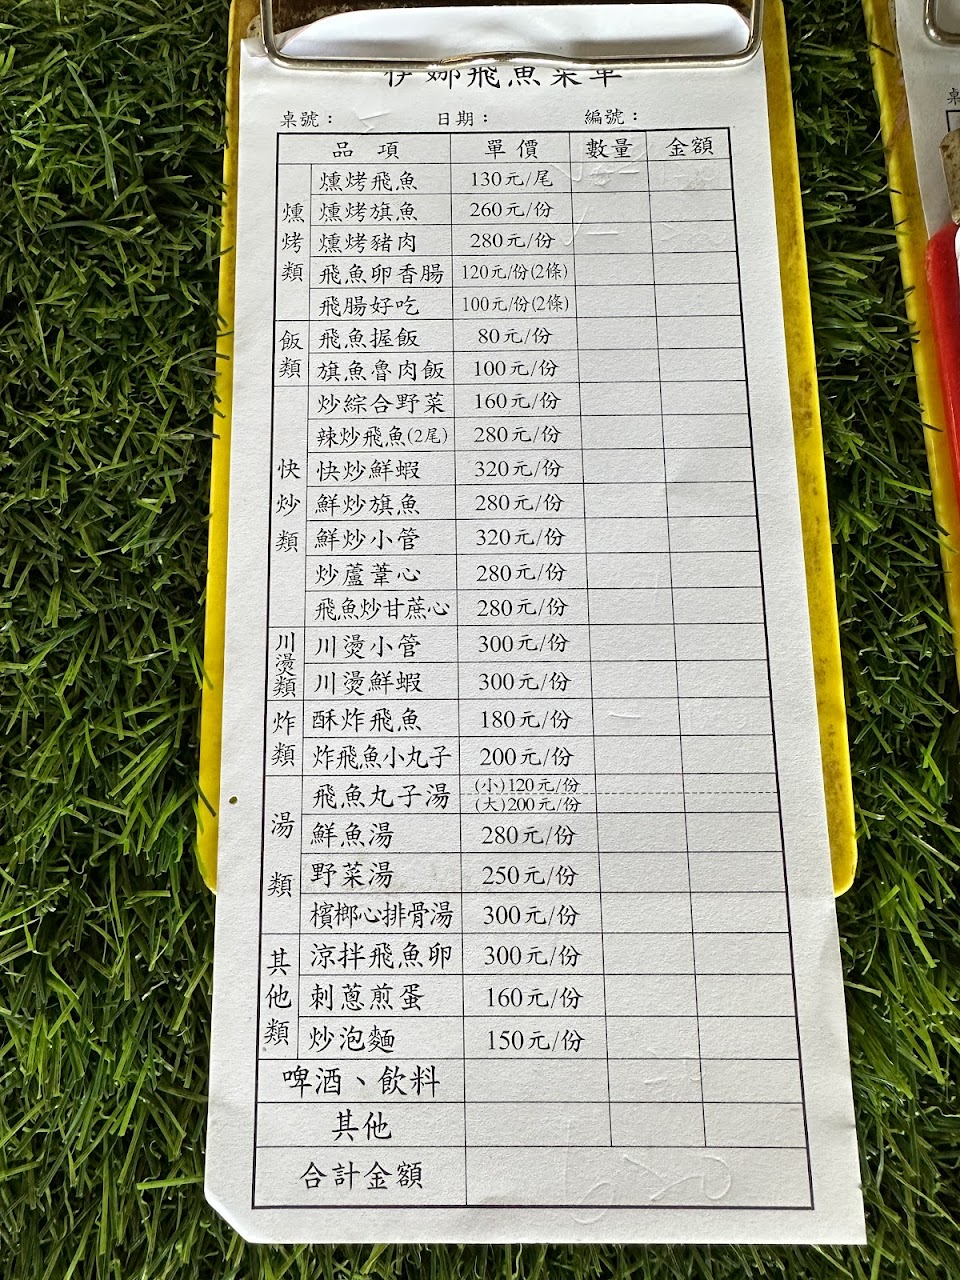 伊娜飛魚菜單
桌號： 日期： 編號：
品項 單價 數量 金額
燻烤類
燻烤飛魚 130元/尾
燻烤旗魚 260元/份
燻烤豬肉 280元/份
飛魚卵香腸 120元/份(2條)
飛腸好吃 100元/份(2條)
飯類
飛魚握飯 80元/份
旗魚魯肉飯 100元/份
快炒類
炒綜合野菜 160元/份
辣炒飛魚(2尾) 280元/份
快炒鮮蝦 320元/份
鮮炒旗魚 280元/份
鮮炒小管 320元/份
炒蘆葦心 280元/份
飛魚炒甘蔗心 280元/份
川燙類
川燙小管 300元/份
川燙鮮蝦 300元/份
炸類
酥炸飛魚 180元/份
炸飛魚小丸子 200元/份
湯類
飛魚丸子湯 (小)120元/份
(大)200元/份
鮮魚湯 280元/份
野菜湯 250元/份
檳榔心排骨湯 300元/份
其他類
涼拌飛魚卵 300元/份
刺蔥煎蛋 160元/份
炒泡麵 150元/份
啤酒、飲料
其他
合計金額